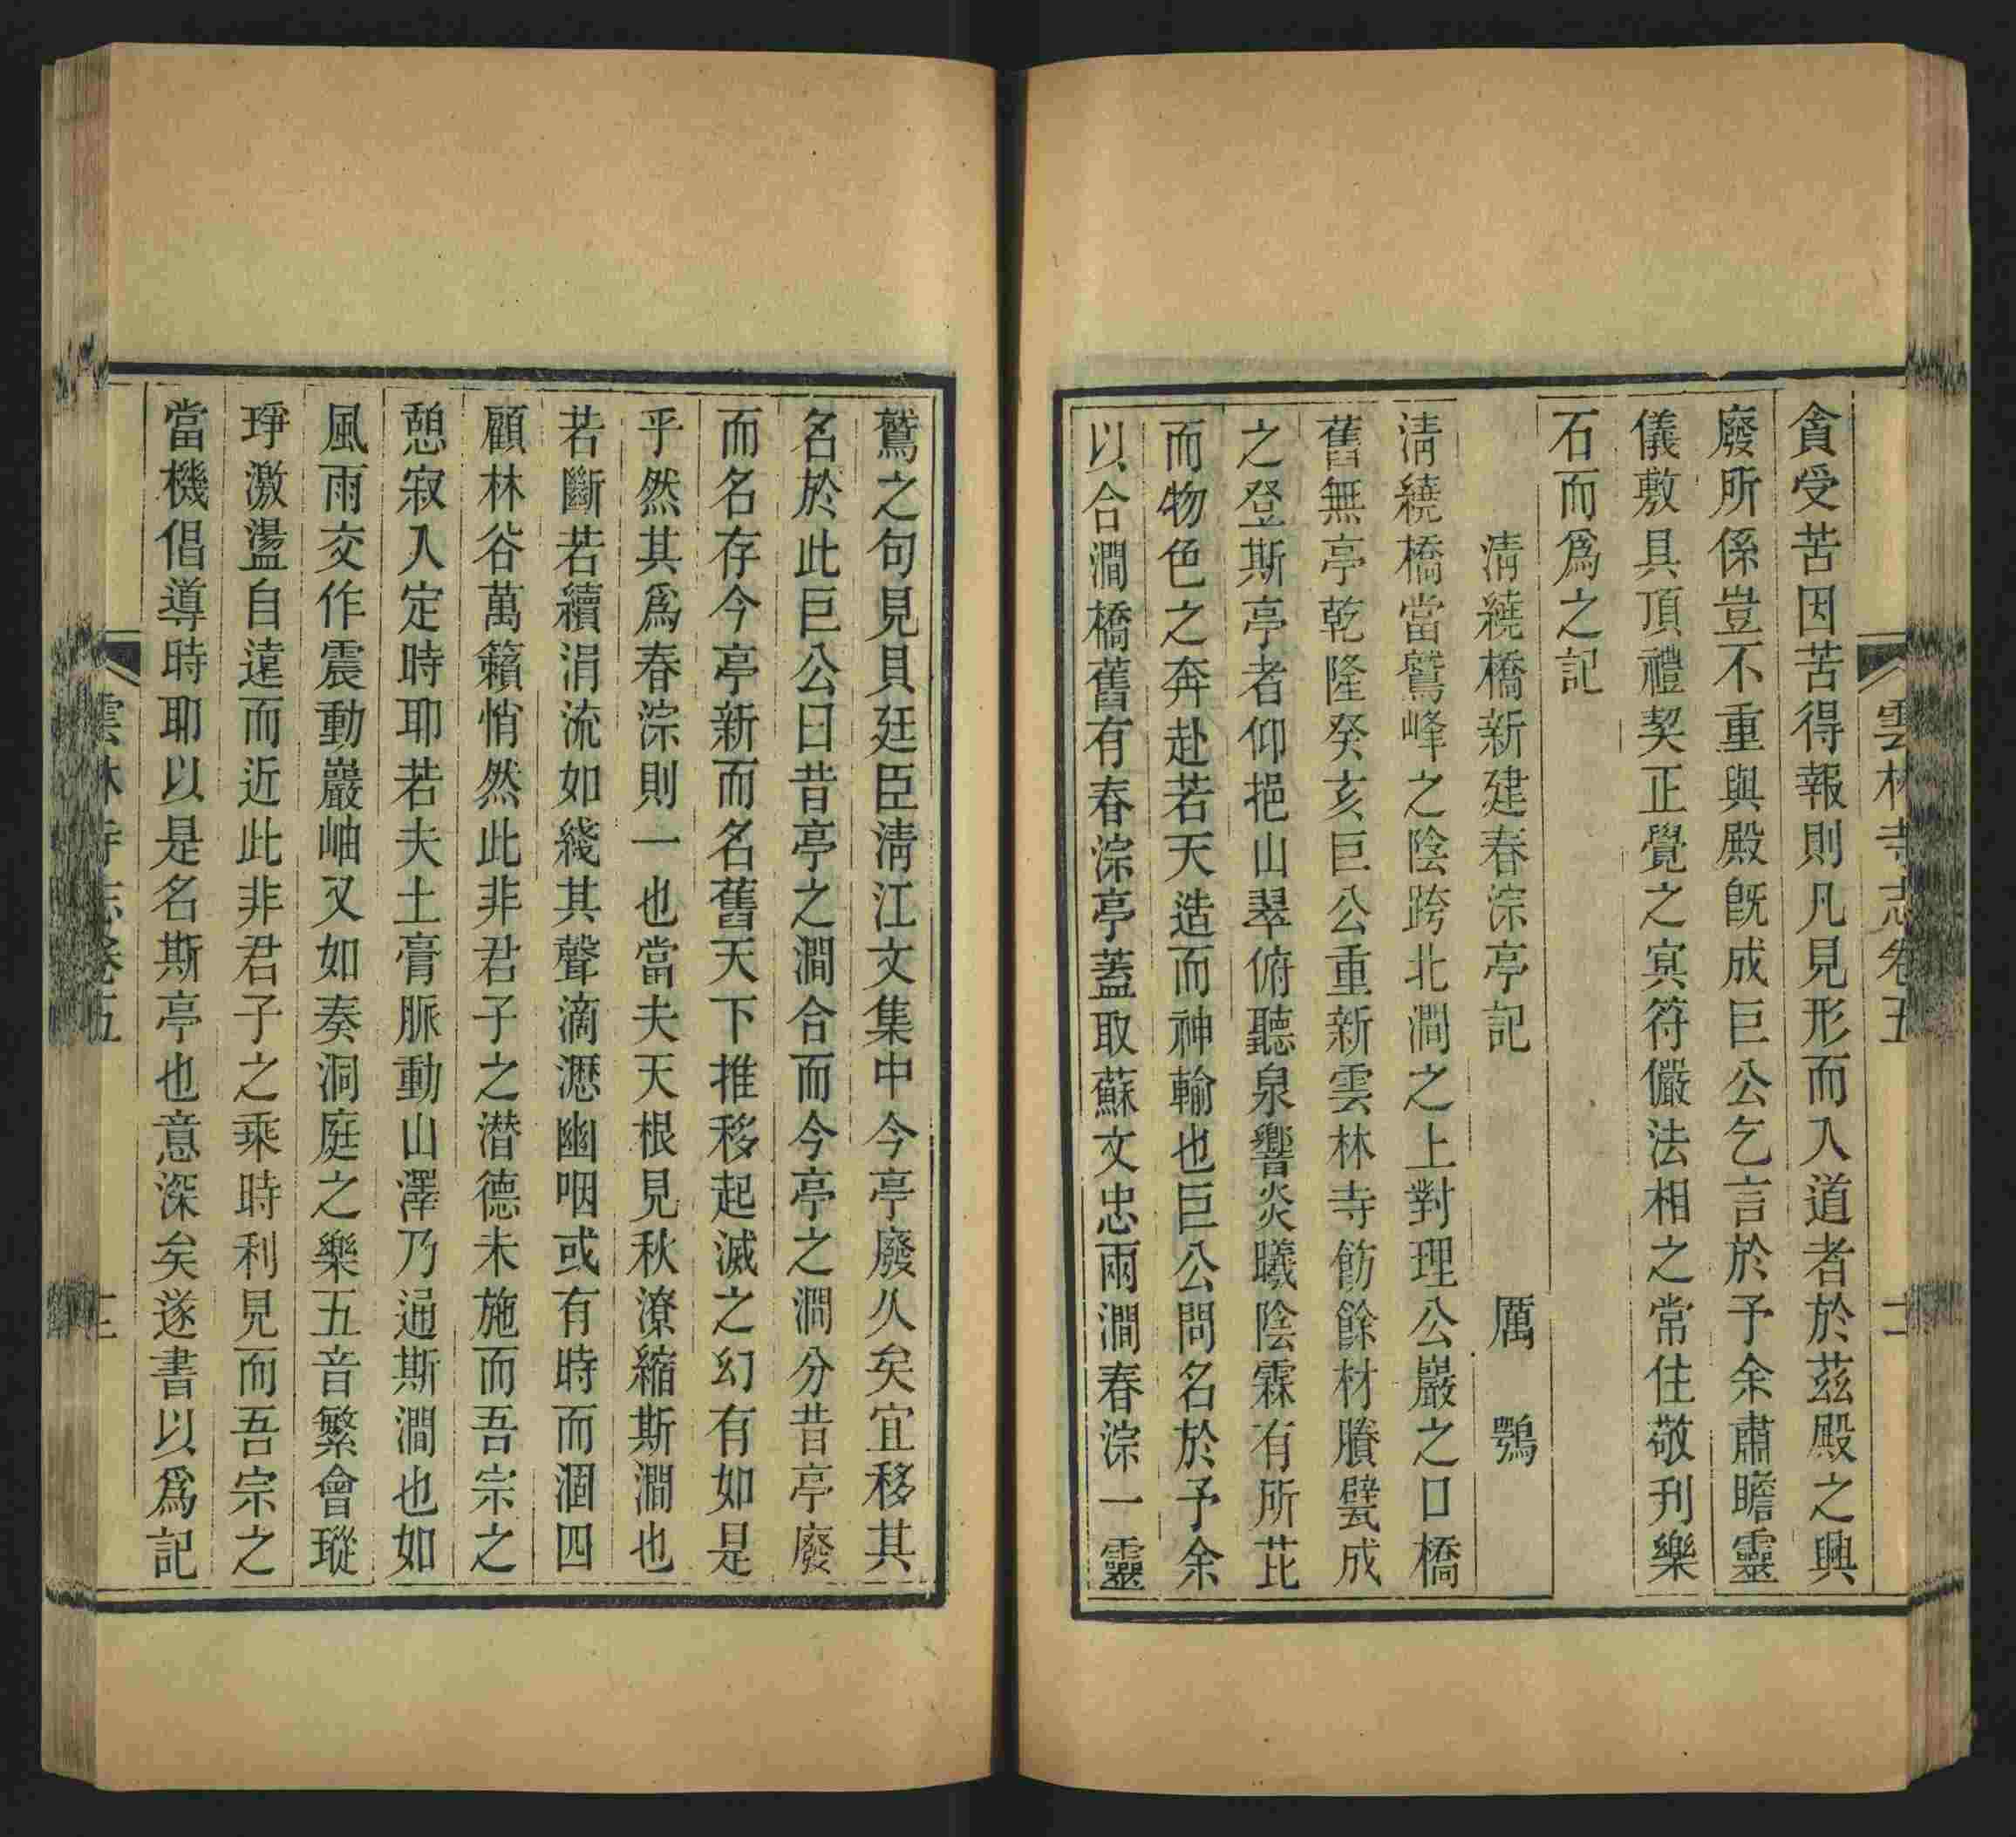 雲林寺志卷五
貪受苦因苦得報則凡見形而入道者於茲殿之興
廢所係豈不重與殿旣成巨公乞言於予余肅瞻靈
儀敷具頂禮契正覺之冥符儼法相之常住敬刋樂
石而爲之記
淸繞橋新建春淙亭記 厲鶚
淸繞橋當鷲峰之陰跨北澗之上對理公巖之口橋
舊無亭乾隆癸亥巨公重新雲林寺飭餘材賸甓成
之登斯亭者仰挹山翠俯聽泉響炎曦陰霖有所芘
而物色之奔赴若天造而神輸也巨公問名於予余
以合澗橋舊有春淙亭蓋取蘇文忠兩澗春淙一靈
鷲之句見貝廷臣淸江文集中今亭廢久矣宜移其
名於此巨公曰昔亭之澗合而今亭之澗分昔亭廢
而名存今亭新而名舊天下推移起滅之幻有如是
乎然其爲春淙則一也當夫天根見秋潦縮斯澗也
若斷若續涓流如綫其聲滴瀝幽咽或有時而涸四
顧林谷萬籟悄然此非君子之潛德未施而吾宗之
憩寂入定時耶若夫土膏脈動山澤乃通斯澗也如
風雨交作震動巖岫又如奏洞庭之樂五音繁會瑽
琤激盪自遠而近此非君子之乘時利見而吾宗之
當機倡導時耶以是名斯亭也意深矣遂書以爲記
雲林寺志卷五